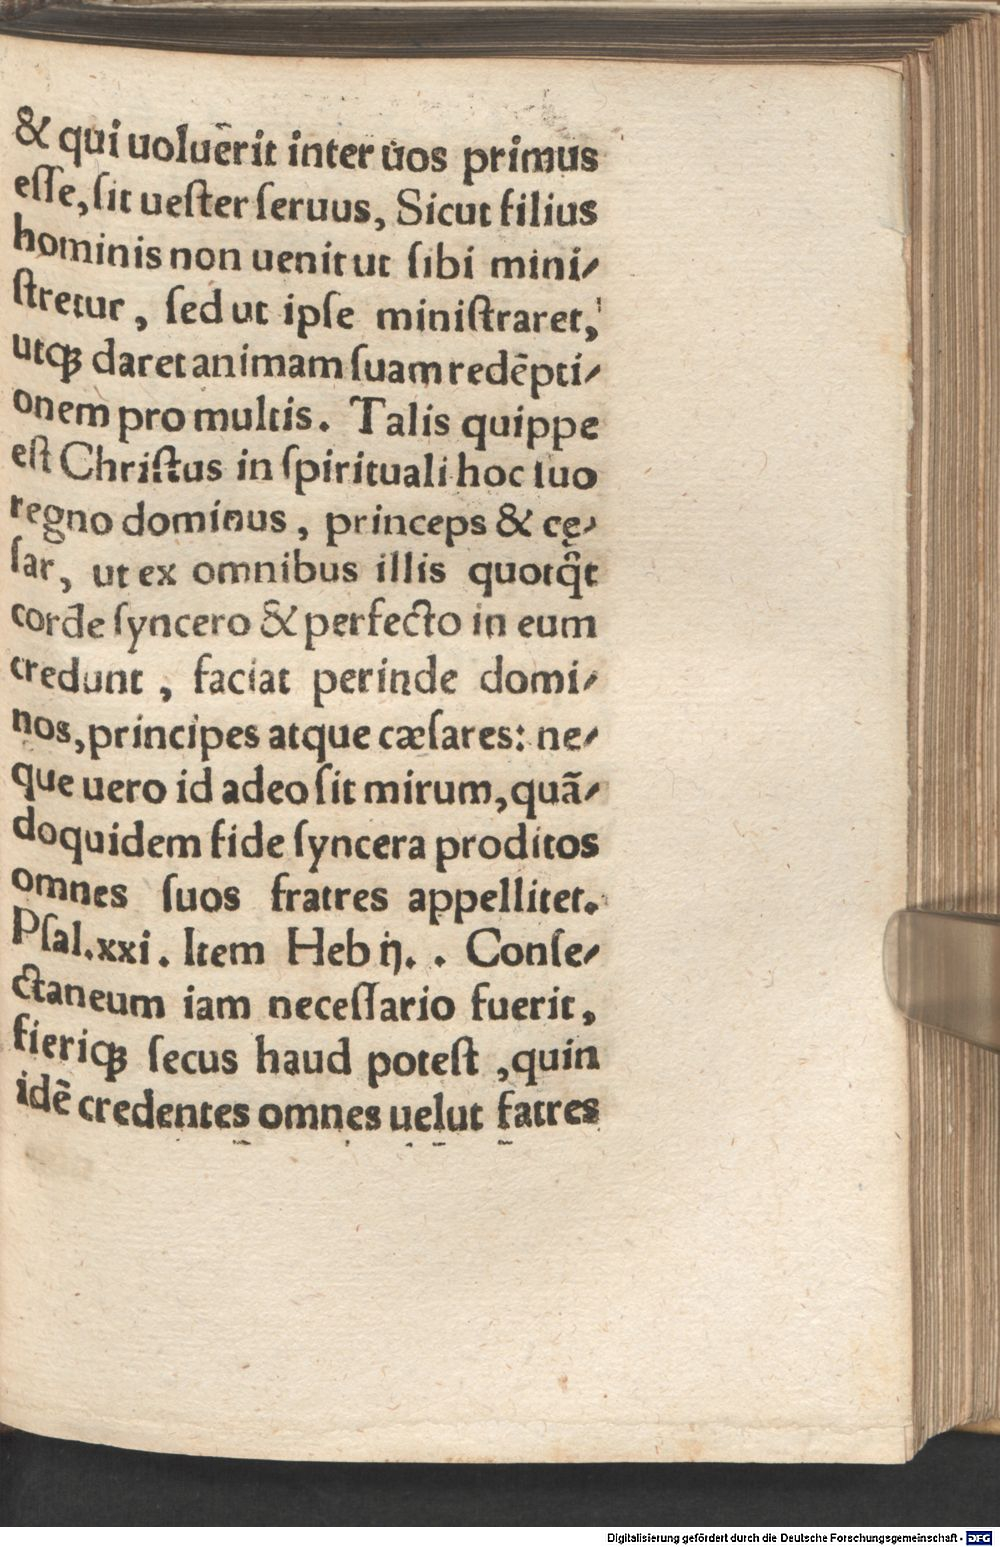 & qui uoluerit inter uos primus
eſſe, ſit ueſter ſeruus, Sicut filius
hominis non uenit ut ſibi mini⸗
ſtretur, ſed ut ipſe miniſtraret,
utqꝫ daret animam ſuam redēpti⸗
onem pro multis. Talis quippe
eſt Chriſtus in ſpirituali hoc ſuo
regno dominus, princeps & cę⸗
ſar, ut ex omnibus illis quotq̃t
corde ſyncero & perfecto in eum
credunt, faciat perinde domi⸗
nos, principes atque cæſares: ne⸗
que uero id adeo ſit mirum, quā⸗
doquidem fide ſyncera proditos
omnes ſuos fratres appellitet.
Pſal. xxi. Item Heb ij. . Conſe⸗
ctaneum iam neceſſario fuerit,
fieriqꝫ ſecus haud poteſt, quin
idē credentes omnes uelut fatres
Digitalisierung gefördert durch die Deutsche Forschungsgemeinschaft - DFG